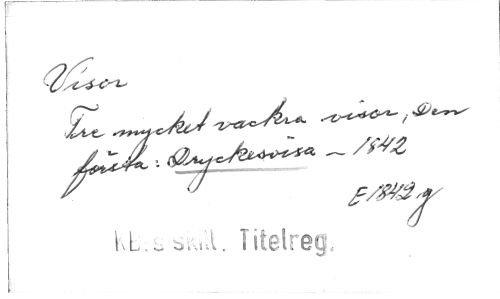 Visor
Tre mycket vackra visor, Den
första: Dryckesvisa – 1842
E 1842 g
KB:s skill. Titelreg.